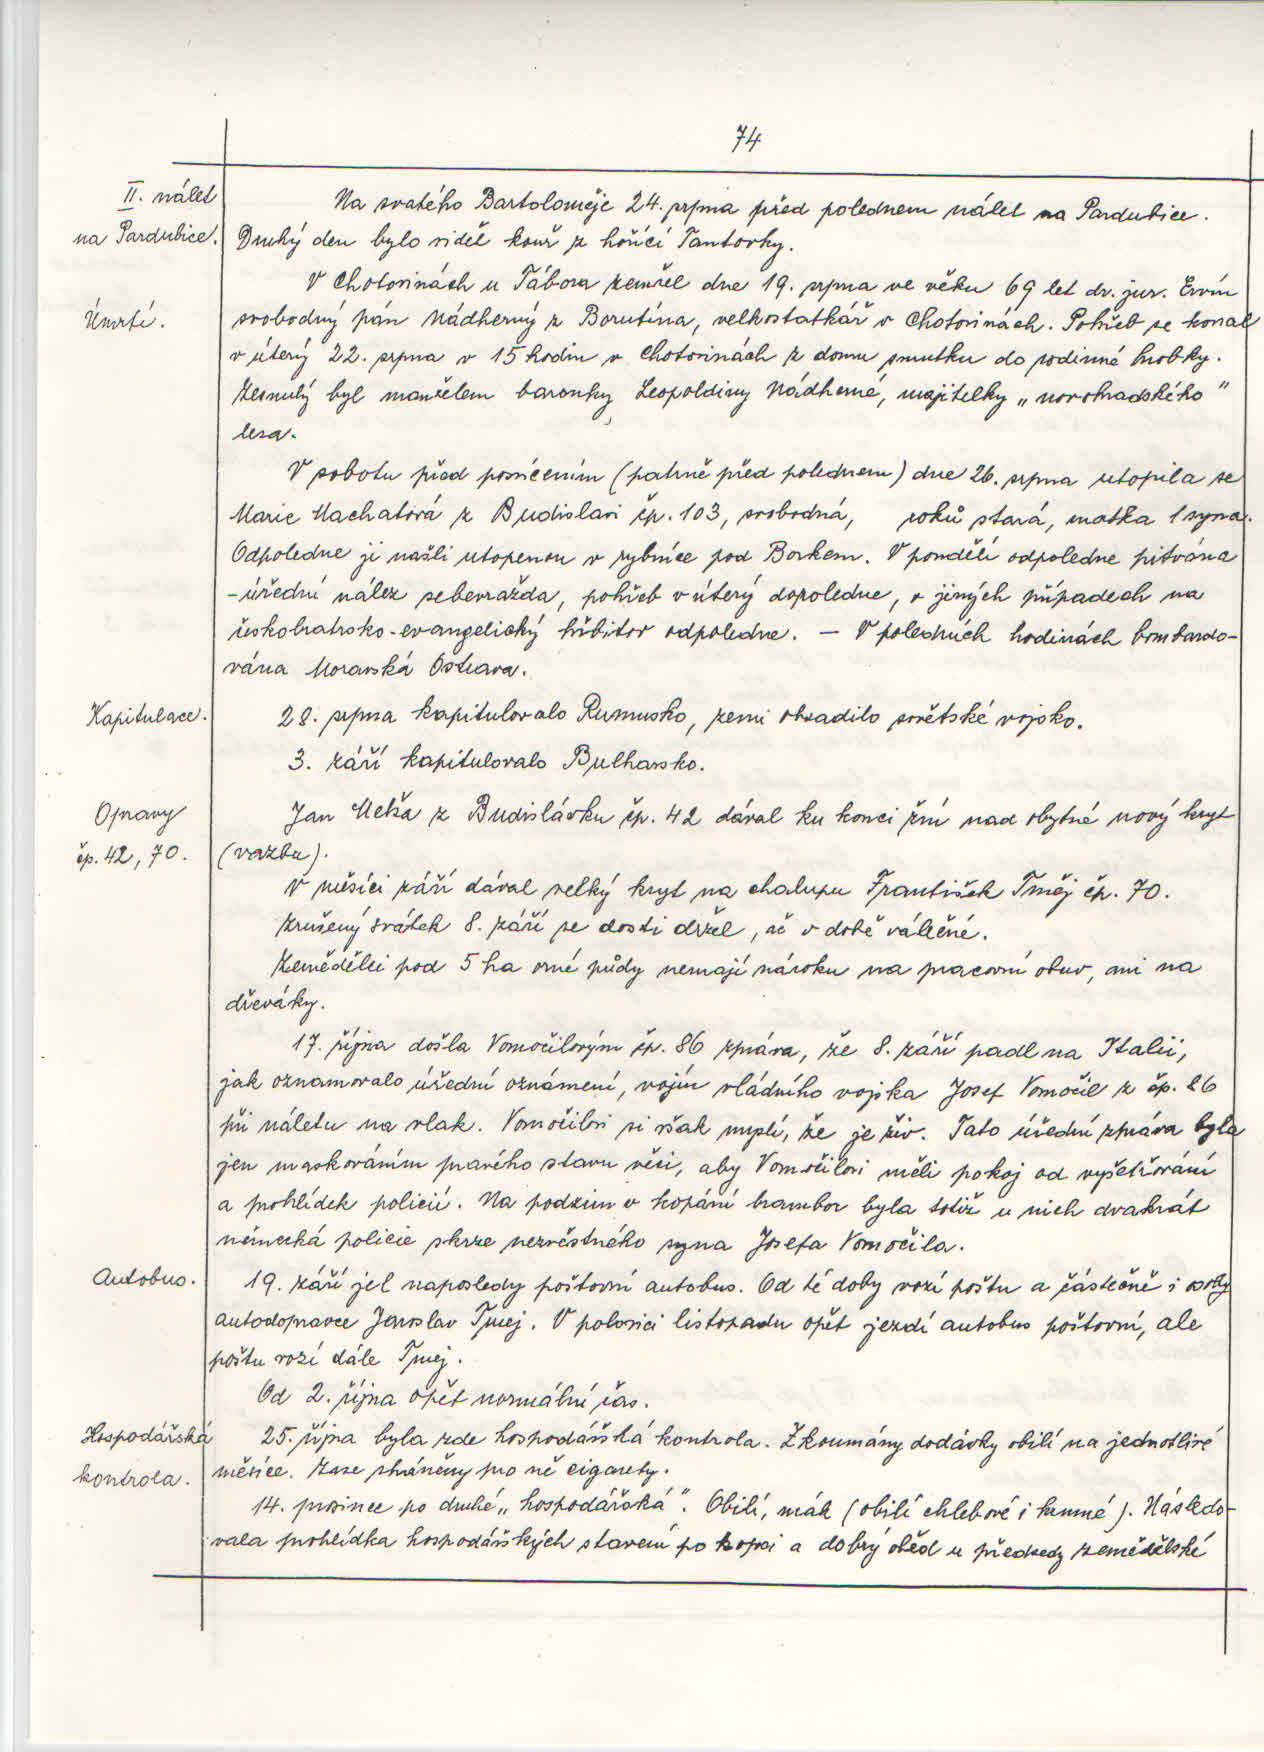 74
II. nálet
na Pardubice.
Na svatého Bartoloměje 24. srpna před polednem nálet na Pardubice.
Druhý den bylo viděl kouř z hořící Fantovky.
Úmrtí.
V Chotovinách u Tábora zemřel dne 19. srpna ve věku 69 let dr. jur. Ervín
svobodný pán Nádherný z Borutína, velkostatkář v Chotovinách. Pohřeb se konal
v úterý 22. srpna v 15 hodin v Chotovinách z domu smutku do rodinné hrobky.
Zesnulý byl manželem baronky Leopoldiny Nádherné, majitelky „novohradského"
lesa.
V sobotu před posvícením (patrně před polednem) dne 26. srpna utopila se
Marie Machatová z Budislavi čp. 103, svobodná, roků stará, matka 1 syna.
Odpoledne ji našli utopenou v rybníce pod Borkem. V pondělí odpoledne pitvána
- úřední nález sebevražda, pohřeb v úterý dopoledne, v jiných případech na
českobratrsko-evangelický hřbitov odpoledne. — V poledních hodinách bombardo-
vána Moravská Ostrava.
Kapitulace.
28. srpna kapitulovalo Rumusko, zemi obsadilo sovětské vojsko.
3. září kapitulovalo Bulharsko.
Opravy
čp. 42, 70.
Jan z Budislávku čp. 42 dával ku konci žní nad obytné nový kryt
(vazbu).
V měsíci září dával velký kryt na chalupu František Tměj čp. 70.
Zrušený svátek 8. září se dosti držel, ač v době válečné.
Zemědělci pod 5 ha orné půdy nemají nároku na pracovní obuv, ani na
dřeváky.
17. října došla Vomočilovým čp. 86 zpráva, že 8. září padl na Italii,
jak oznamovalo úřední oznámení, vojín vládního vojska Josef Vomočil z čp. 86
při náletu na vlak. Vomočilovi si však myslí, že je živ. Tato úřední zpráva byla
jen maskováním pravého stavu věci, aby Vomočilovi měli pokoj od vyšetřování
a prohlídek policií. Na podzim v kopání brambor byla totiž u nich dvakrát
německá policie skrze nezvěstného syna Josefa Vomočila.
Autobus.
19. září jel naposledy poštovní autobus. Od té doby vozí poštu a částečně i osoby
autodopravce Jaroslav Tmej. V polovici listopadu opět jezdí autobus poštovní, ale
poštu vozí dále Tmej.
Od 2. října opět normální čas.
Hospodářská
kontrola.
25. října byla zde hospodářská kontrola. Zkoumány dodávky obilí na jednotlivé
měsíce. Zase sháněny pro ně cigarety.
14. prosince po druhé „hospodářská". Obilí, mák (obilí chlebové i krmné). Následo-
vala prohlídka hospodářských stavení po kopci a dobrý oběd u předsedy zemědělské